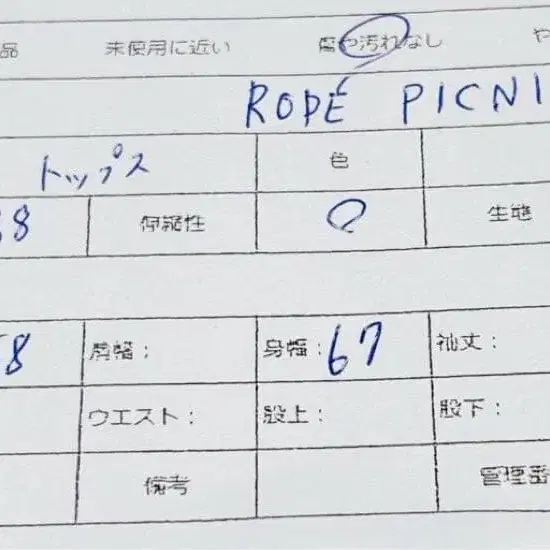 品 未使用に近い 傷や汚れなし や
ROPÉ PICNI
トップス 色
38 伸縮性 〇 生地
58 肩幅： 身幅：67 袖丈：
ウエスト： 股上： 股下：
備考 管理番